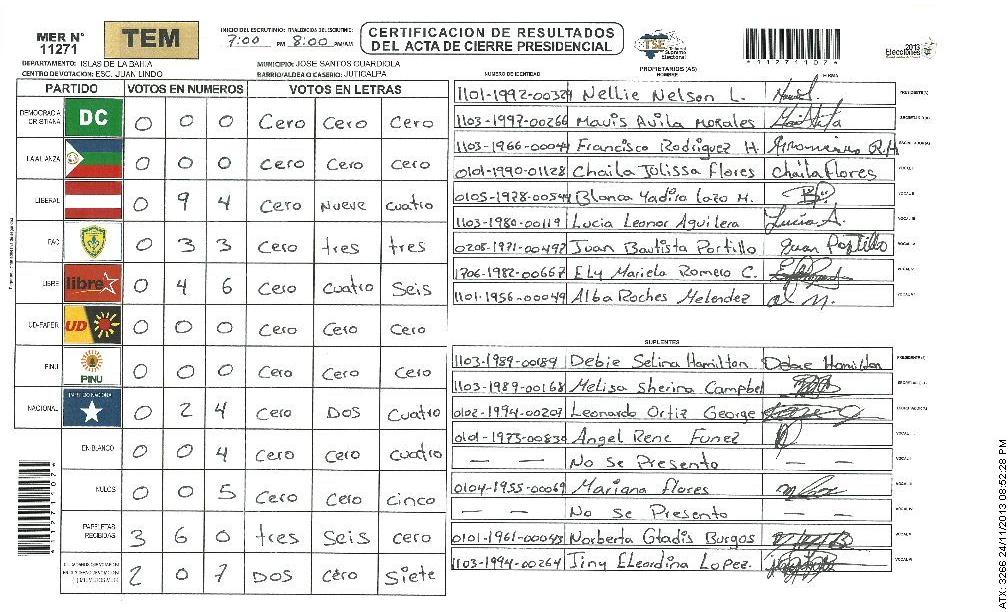 MER N° 11271
TEM
INICIO DEL ESCRUTINIO: 7:00 PM FINALIZACION DEL ESCRUTINIO: 8:00 PM/AM
CERTIFICACION DE RESULTADOS
DEL ACTA DE CIERRE PRESIDENCIAL
TSE Tribunal Supremo Electoral
1127107
Elecciones 2013
DEPARTAMENTO: ISLAS DE LA BAHIA
MUNICIPIO: JOSE SANTOS GUARDIOLA
CENTRO DE VOTACION: ESC. JUAN LINDO
BARRIO/ALDEA O CASERIO: JUTICALPA
PARTIDO VOTOS EN NUMEROS VOTOS EN LETRAS
DEMOCRACIA CRISTIANA DC 0 0 0 Cero Cero Cero
LA ALIANZA 0 0 0 Cero Cero Cero
LIBERAL 0 9 4 Cero Nueve cuatro
PAC 0 3 3 Cero tres tres
LIBRE libre 0 4 6 Cero Cuatro Seis
UD-FAPER UD 0 0 0 Cero Cero Cero
PINU PINU 0 0 0 Cero Cero Cero
NACIONAL PARTIDO NACIONAL 0 2 4 Cero DOS Cuatro
EN BLANCO 0 0 4 Cero Cero cuatro
NULOS 0 0 5 Cero Cero cinco
PAPELETAS RECIBIDAS 3 6 0 tres Seis cero
2 0 7 DOS Cero Siete
NUMERO DE IDENTIDAD PROPIETARIOS (AS) NOMBRE FIRMA
1101-1992-00329 Nellie Nelson L. PRESIDENTE(A)
1103-1997-00266 Mavis Avila Morales SECRETARIO(A)
1103-1966-00044 Francisco Rodriguez H. ESCRUTADOR(A)
0101-1990-01128 Chaila Julissa Flores Chaila Flores VOCAL I
0105-1978-00544 Blanca Yadira Lazo M. VOCAL II
1103-1980-00119 Lucia Leonor Aguilera Lucia A. VOCAL III
0208-1971-00497 Juan Bautista Portillo Juan Portillo VOCAL IV
1706-1982-00667 Ely Mariela Romero C. VOCAL V
1101-1956-00049 Alba Roches Melendez VOCAL VI
SUPLENTES
1103-1989-00189 Debie Selina Hamilton Debie Hamilton PRESIDENTE(A)
1103-1989-00168 Melisa Sherina Campbel SECRETARIO(A)
0102-1994-00209 Leonardo Ortiz George ESCRUTADOR(A)
0101-1973-00830 Angel Rene Funez VOCAL I
— — No Se Presento — — VOCAL II
0104-1955-00069 Mariana Flores VOCAL III
— — No Se Presento — — VOCAL IV
0101-1961-00043 Norberta Gladis Burgos VOCAL V
1103-1994-00264 Jiny Eleordina Lopez. VOCAL VI
1127107
ATX: 3266 24/11/2013 08:52:28 PM